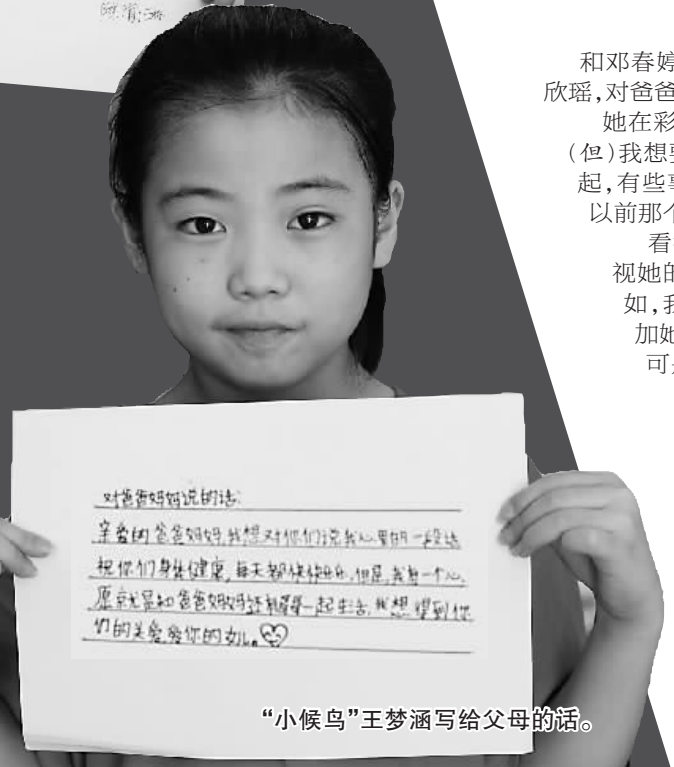 和邓春婷
欣瑶,对爸爸
她在彩
(但)我想
起,有些
以前那个
看
视她的
如,我
加她
可
对爸爸妈妈说的话:
亲爱的爸爸妈妈,我想对你们说我心里的一段话
祝你们身体健康,每天都快快乐乐,但是,我有一个心
愿就是和爸爸妈妈还一起生活,我想得到你
们的关爱,爱你的女儿。
“小候鸟”王梦涵写给父母的话。